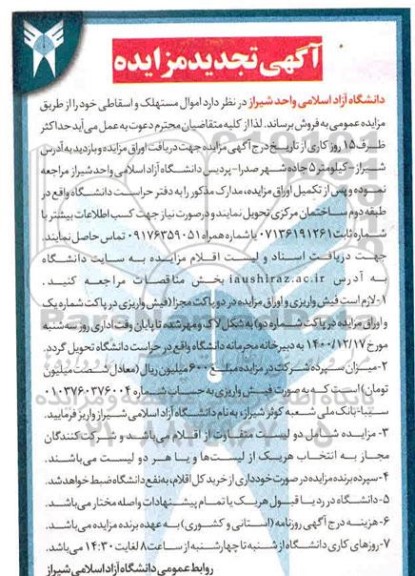 آگهی تجدید مزایده
دانشگاه آزاد اسلامی واحد شیراز در نظر دارد اموال مستهلک و اسقاطی خود را از طریق
مزایده عمومی به فروش برساند. لذا از کلیه متقاضیان محترم دعوت به عمل می آید حداکثر
ظرف ۱۵ روز کاری از تاریخ درج آگهی مزایده جهت دریافت اوراق مزایده و بازدید به آدرس
شیراز - کیلومتر ۵ جاده شهر صدرا - پردیس دانشگاه آزاد اسلامی واحد شیراز مراجعه
نموده و پس از تکمیل اوراق مزایده، مدارک مذکور را به دفتر حراست دانشگاه واقع در
طبقه دوم ساختمان مرکزی تحویل نمایند و درصورت نیاز جهت کسب اطلاعات بیشتر با
شماره ثابت ۰۷۱۳۶۱۹۱۲۶۱ یا شماره همراه ۰۹۱۷۶۳۵۹۰۵۱ تماس حاصل نمایند.
جهت دریافت اسناد و لیست اقلام مزایده به سایت دانشگاه
به آدرس iaushiraz.ac.ir بخش مناقصات مراجعه کنید.
۱- لازم است فیش واریزی و اوراق مزایده در دو پاکت مجزا (فیش واریزی در پاکت شماره یک
و اوراق مزایده در پاکت شماره دو) به شکل لاک و مهر شده تا پایان وقت اداری روز سه شنبه
مورخ ۱۴۰۰/۱۲/۱۷ به دبیرخانه محرمانه دانشگاه واقع در حراست دانشگاه تحویل گردد.
۲- میزان سپرده شرکت در مزایده مبلغ ۶۰۰ میلیون ریال (معادل شصت میلیون
تومان) است که به صورت فیش واریزی به حساب شماره ۰۱۰۳۷۶۰۳۷۶۰۰۴
سیبا - بانک ملی شعبه کوثر شیراز، به نام دانشگاه آزاد اسلامی شیراز واریز فرمایید.
۳- مزایده شامل دو لیست متفاوت از اقلام می باشد و شرکت کنندگان
مجاز به انتخاب هریک از لیست ها و یا هر دو لیست می باشند.
۴- سپرده برنده مزایده در صورت خودداری از خرید کل اقلام، به نفع دانشگاه ضبط خواهد شد.
۵- دانشگاه در رد یا قبول هریک یا تمام پیشنهادات واصله مختار می باشد.
۶- هزینه درج آگهی روزنامه (استانی و کشوری) به عهده برنده مزایده می باشد.
۷- روزهای کاری دانشگاه از شنبه تا چهارشنبه از ساعت ۸ لغایت ۱۴:۳۰ می باشد.
روابط عمومی دانشگاه آزاد اسلامی شیراز